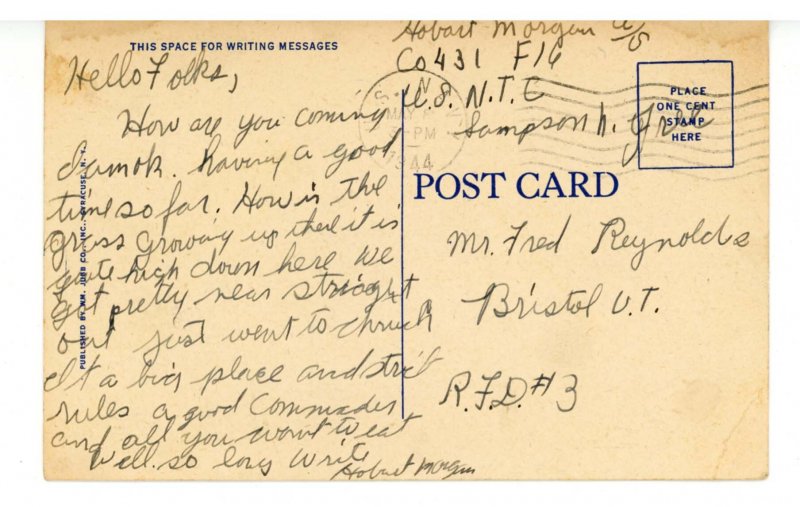 THIS SPACE FOR WRITING MESSAGES
Hello Folks,
How are you coming
I am ok. having a good
time so far. How is the
grass growing up there it is
quite high down here We
got pretty near straight
out just went to chruch
It a big place and strict
rules a good Commander
and all you want to eat
Well so long Write
Hobart Morgan
PUBLISHED BY WM. JUBB CO., INC., SYRACUSE, N. Y.
Hobart Morgan A/S
Co 431 F16
U.S. N.T.C
Sampson N.
Free
MAY
PM
1944
PLACE
ONE CENT
STAMP
HERE
POST CARD
Mr. Fred Reynolds
Bristol V.T.
R.F.D. #3